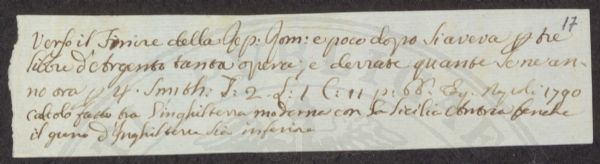 17
Verso il Finire della Rep: Rom: e poco dopo si aveva p tre
licore d'Argento tanta opera, e derrate quante se ne an-
no ora p 4. Smith. T: 2. L: 1 C: 11 p: 66. Ey: 1790
calcolo fatto tra l'inghilterra moderna con la Sicilia benche
il d'Inghilterra sia inferiore